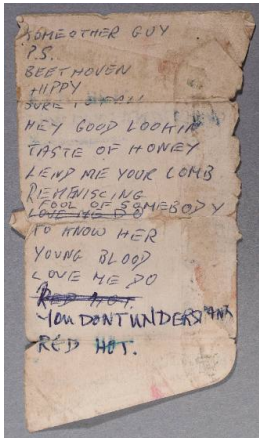 SOME OTHER GUY
P.S.
BEETHOVEN
HIPPY
SURE TO
HEY GOOD LOOKIN
TASTE OF HONEY
LEND ME YOUR COMB
REMENISCING
FOOL OF SOMEBODY
LOVE ME DO
TO KNOW HER
YOUNG BLOOD
LOVE ME DO
RED HOT.
YOU DONT UNDERSTAND
RED HOT.